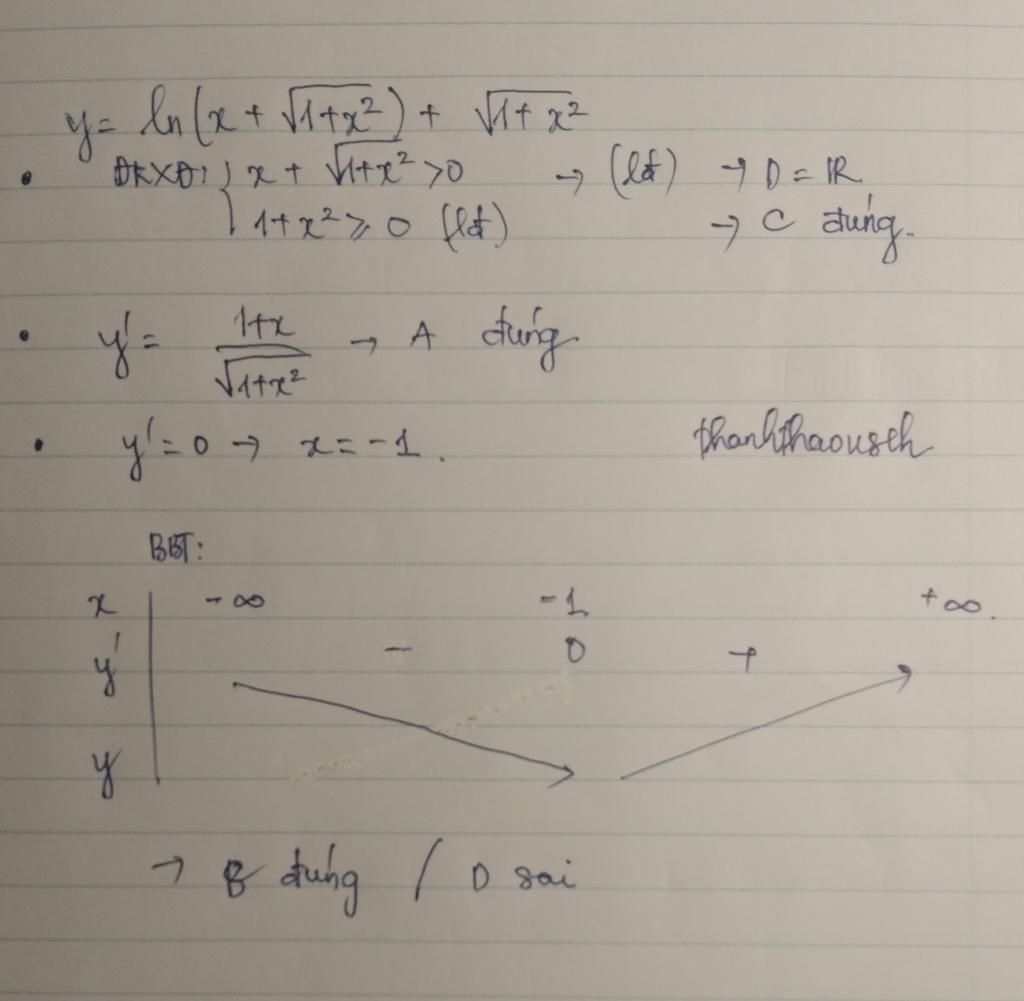 y = ln(x + √1+x²) + √1+x²
• ĐKXĐ: { x + √1+x² > 0 → (lđ) → D = R
1+x² ≥ 0 (lđ) → C đúng.
• y' = 1+x / √1+x² → A đúng
• y' = 0 → x = -1. thanhthaouseh
BBT:
x -∞ -1 +∞.
y' - 0 +
y
→ B đúng / D sai